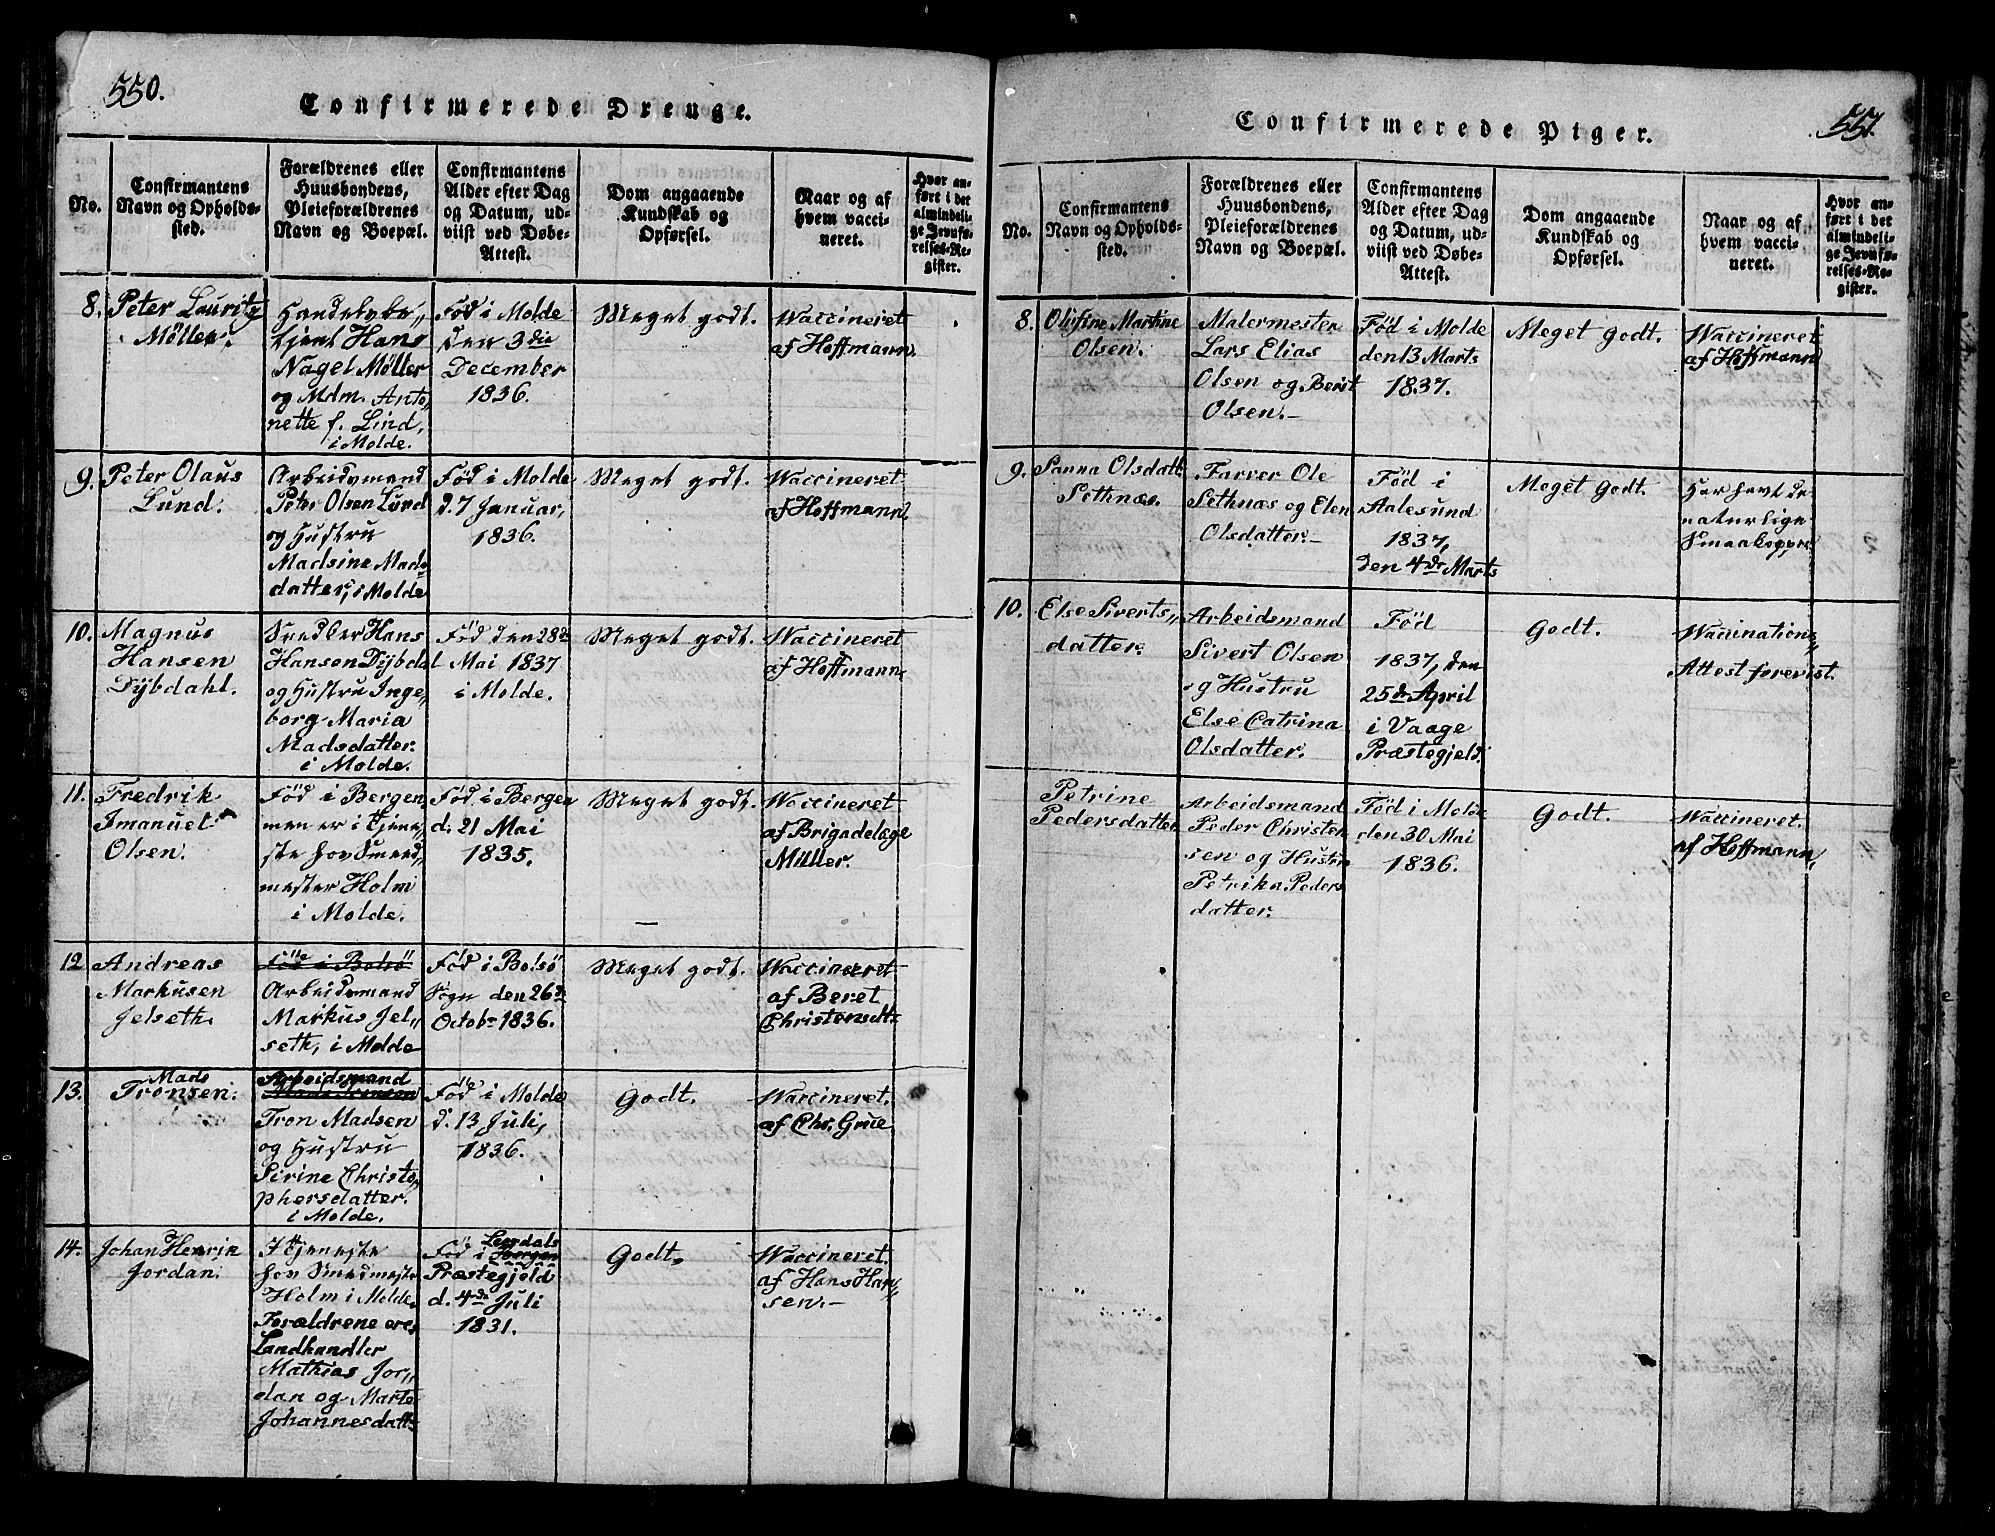 550.
Confirmerede Drenge.
No.
Confirmantens
Navn og Opholds-
sted.
Forældrenes eller
Huusbondens,
Pleieforældrenes
Navn og Boepæl.
Confirmantens
Alder efter Dag
og Datum, ud-
viist ved Døbe-
Attest.
Dom angaaende
Kundskab og
Opførsel.
Naar og af
hvem vacci-
neret.
Hvor an-
ført i det
almindeli-
ge Jevnfø-
relses-Re-
gister.
8.
Peter Lauritz
Möller.
tjent Hans
Nagel Møller
og Mdm. Anto„
nette f. Lind,
i Molde.
Fød i Molde
den 3die
December
1836.
Meget godt.
Waccineret
af Hoffmann.
9.
Peter Olaus
Lund.
Arbeidsmand
Peter Olsen Lund
og Hustru
Madsine Mads
datter, i Molde
Fød i Molde
d. 7 Januar,
1836.
Meget godt.
Waccineret
af Hoffmann.
10.
Magnus
Hansen
Dÿbdahl.
Snedker Hans
Hansen Dÿbdal
og Hustru Inge„
borg Maria
Madsdatter.
i Molde.
Fød den 28de
Mai 1837
i Molde.
Meget godt.
Waccineret
af Hoffmann.
11.
Fredrik
Imanuel
Olsen.
Fød i Bergen,
men er i Tjene„
ste hos Smed„
mester Holm
i Molde.
Fød i Bergen
d. 21 Mai
1835.
Meget godt.
Waccineret
af Brigadelæge
Müller.
12
Andreas
Markusen
Jelseth.
Fød i Bolsö
Arbeidsmand
Markus Jel„
seth, i Molde
Fød i Bolsö
Sogn den 26de
Octobr 1836.
Meget godt.
Waccineret
af Beret
Christensdt.
13.
Mads
Tronsen.
Arbeidsmand
Mads Tronsen
Tron Madsen
og Hustru
Sirine Christo„
phersdatter.
i Molde.
Fød i Molde
d. 13 Juli,
1836.
Godt.
Waccineret.
af Chr. Grue
14.
Johan Henrik
Jordan.
I Tjeneste
hos Smedmester
Holm i Molde.
Forældrene ere
Landhandler
Mathias Jor„
dan og Marte
Johannesdatt.
Leerdals
Fød i Borgen
Præstegjeld
d. 4de Juli
1831.
Godt.
Waccineret.
af Hans Han„
sen.-
Confirmerede Piger.
557.
No.
Confirmantens
Navn og Opholds-
sted.
Forældrenes eller
Huusbondens,
Pleieforældrenes
Navn og Boepæl.
Confirmantens
Alder efter Dag
og Datum, ud-
viist ved Døbe-
Attest.
Dom angaaende
Kundskab og
Opførsel.
Naar og af
hvem vacci-
neret.
Hvor an-
ført i det
almindeli-
ge Jevnfø-
relses-Re-
gister.
8.
Olifine Martine
Olsen.
Malermester
Lars Elias
Olsen og Berit
Olsen.-
Fød i Molde
den 13 Marts
1837.
Meget Godt.
Waccineret
af Hoffmann
9.
Sanna Olsdatt.
Sethnæs.
Farver Ole
Sethnæs og Elen
Olsdatter.-
Fød i
Aalesund
1837,
den 4de Marts
Meget Godt.
Har havt de
naturlige
Smaakopper
10.
Else Siverts„
datter.
Arbeidsmand
Sivert Olsen
og Hustru
Else Catrina
Olsdatter.
Fød
1837, den
25de April
i Vaage
Præstegjeld.
Godt.
Waccinations„
Attest forevist.
Petrine
Pedersdatter
Arbeidsmand
Peder Christen
sen og Hustru
Petrika Peders
datter.
Fød i Molde
den 30 Mai
1836.
Godt.
Waccineret.
af Hoffmann,